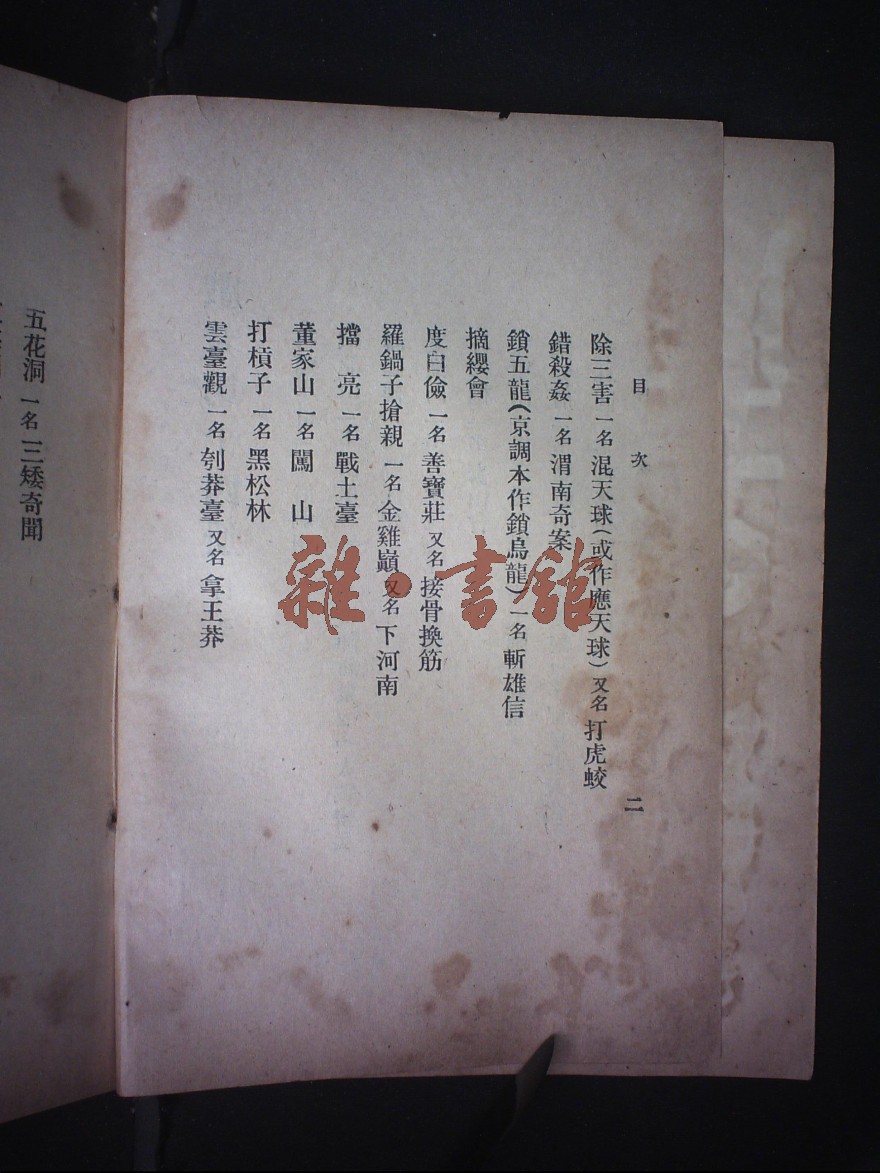 目次
二
除三害 一名 混天球(或作應天球) 又名 打虎蛟
錯殺姦 一名 渭南奇案
鎖五龍(京調本作鎖烏龍) 一名 斬雄信
摘纓會
度白儉 一名 善寶莊 又名 接骨換筋
羅鍋子搶親 一名 金雞嶺 又名 下河南
擋亮 一名 戰土臺
董家山 一名 闖山
打槓子 一名 黑松林
雲臺觀 一名 刳莽臺 又名 拿王莽
五花洞 一名 三矮奇聞
雜·書館